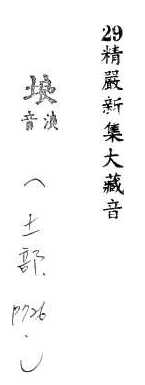 29精嚴新集大藏音
音
(土部. P726.)